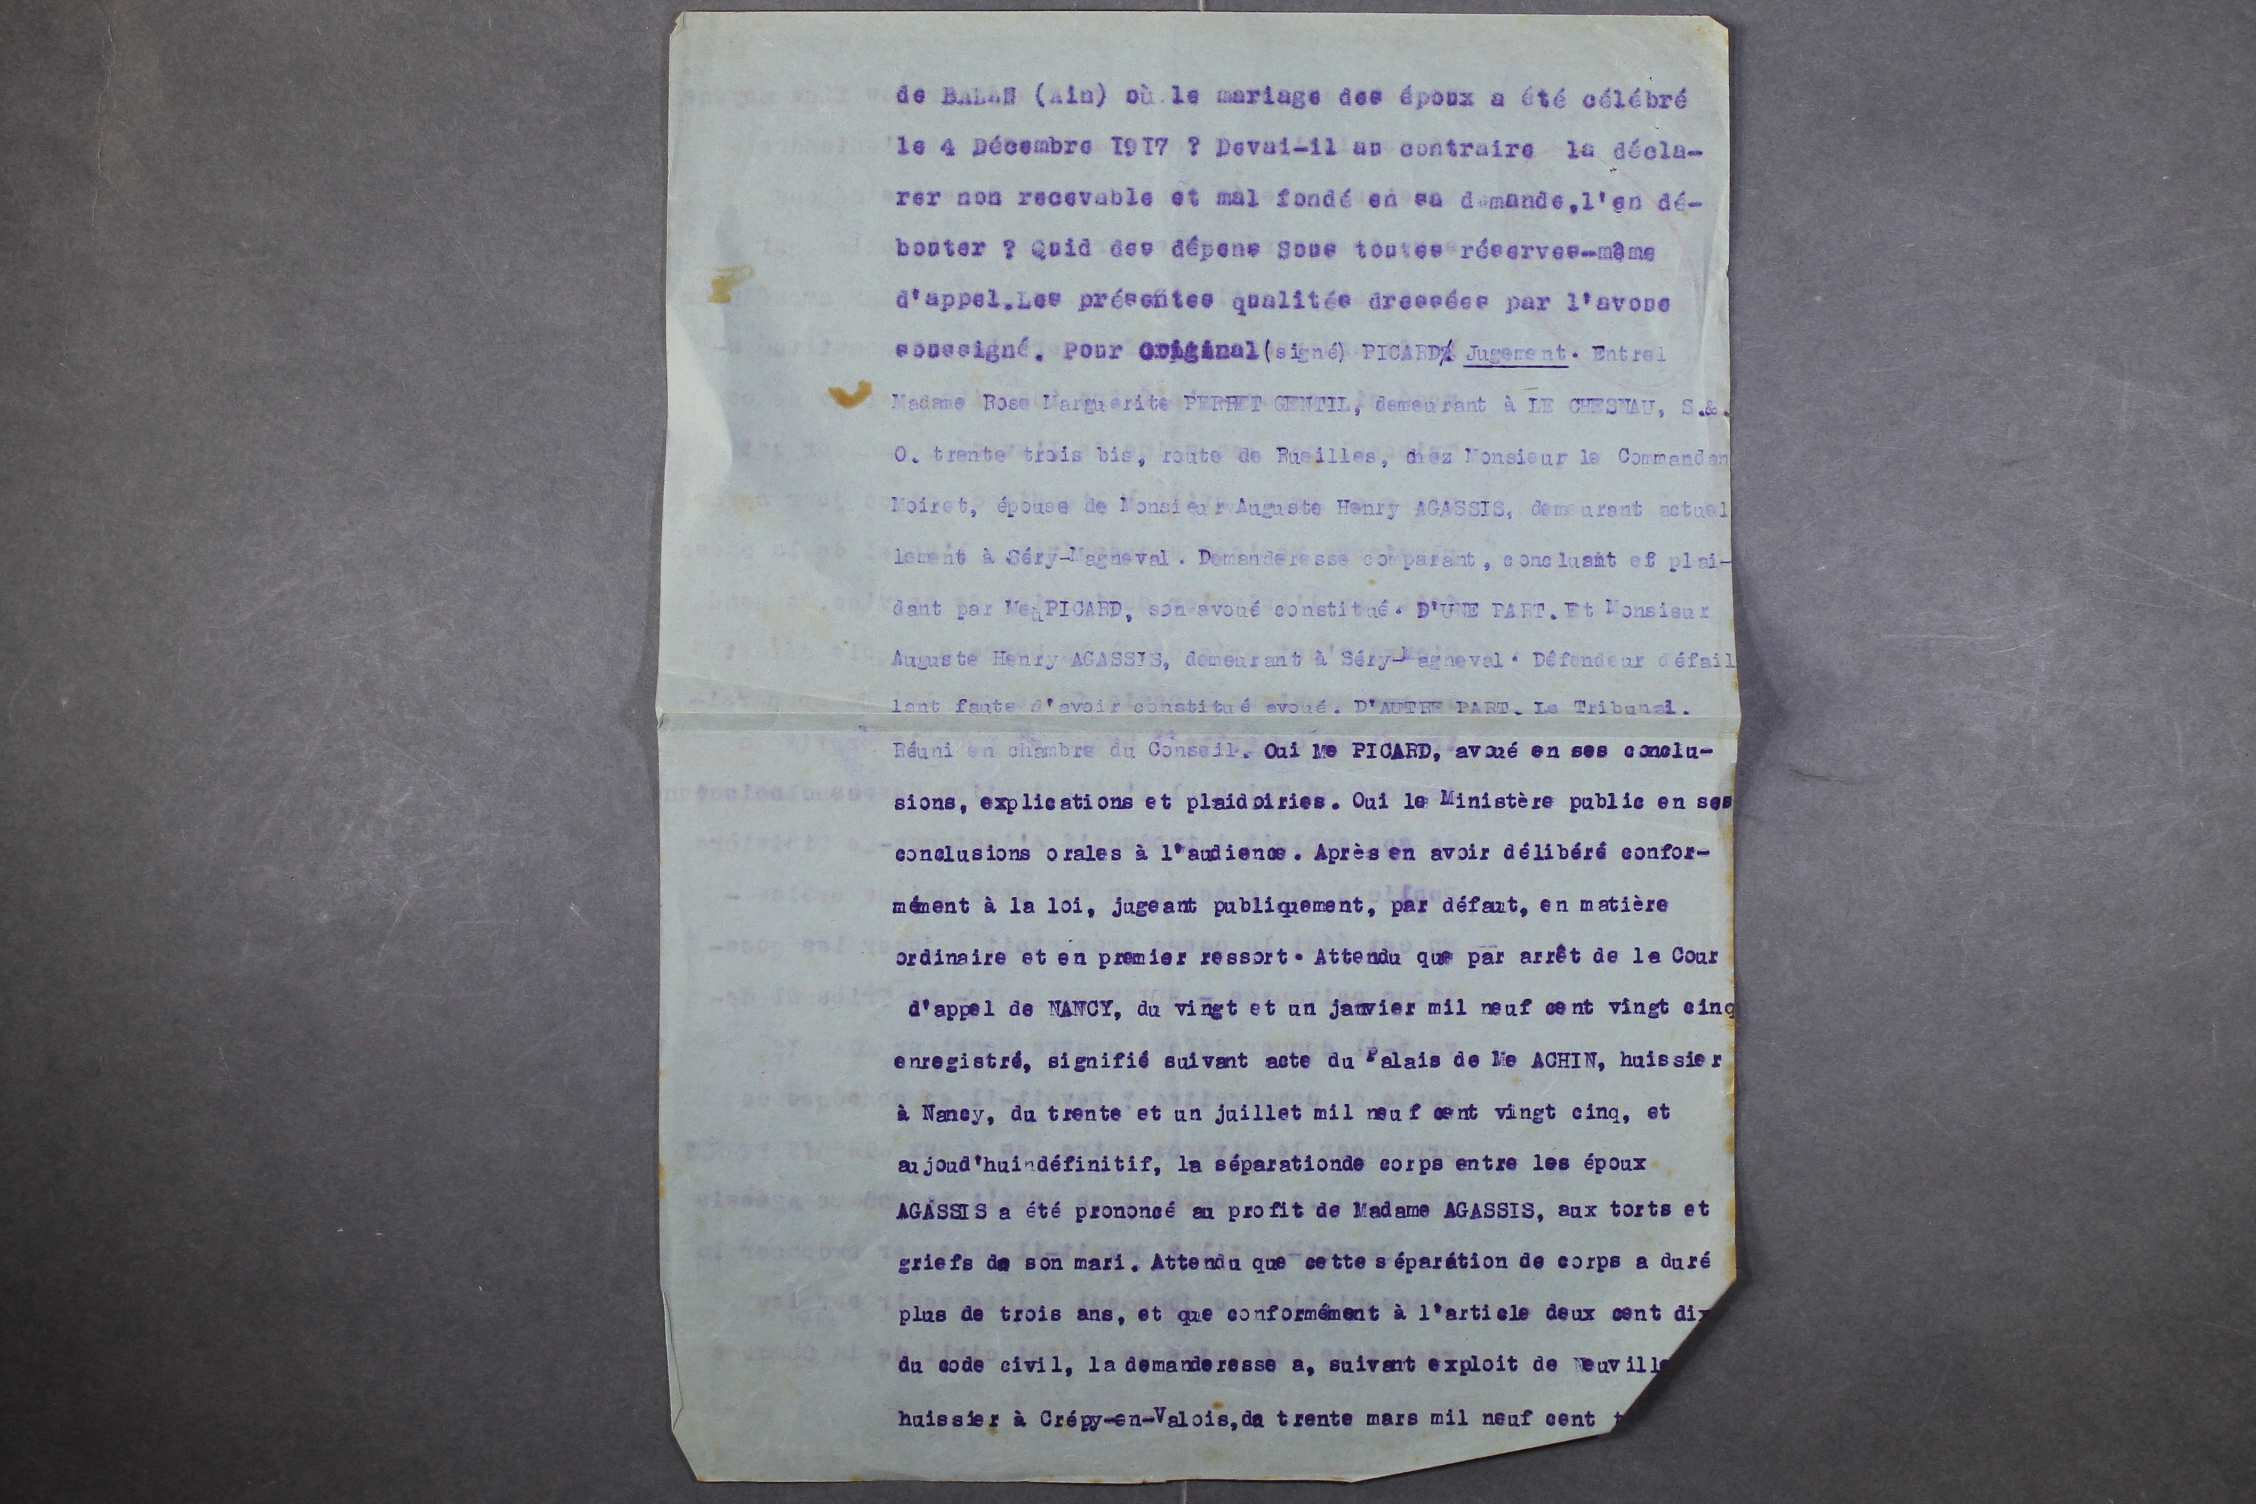 de BALAN (Ain) où le mariage des époux a été célébré
le 4 Décembre I9I7 ? Devai-il au contraire la décla-
rer non recevable et mal fondé en sa demande,l'en dé-
bouter ? Quid des dépens Sous toutes réserves-même
d'appel.Les présentes qualités dressées par l'avoué
soussigné. Pour Original(signé) PICARD Jugement. Entre
Madame Rose Marguerite PERRET GENTIL, demeurant à LE CHESNAU, S.&.
O. trente trois bis, route de Rueilles, chez Monsieur le Commandan
Moiret, épouse de Monsieur Auguste Henry AGASSIS, demeurant actuel
lement à Séry-Magneval. Demanderesse comparant, concluant et plai-
dant par Me PICARD, son avoué constitué. D'UNE PART. Et Monsieur
Auguste Henry AGASSIS, demeurant à Séry-Magneval. Défendeur défail
lant faute d'avoir constitué avoué. D'AUTRE PART. Le Tribunal.
Réuni en chambre du Conseil. Oui Me PICARD, avoué en ses conclu-
sions, explications et plaidoiries. Oui le Ministère public en ses
conclusions orales à l'audience. Après en avoir délibéré confor-
mément à la loi, jugeant publiquement, par défaut, en matière
ordinaire et en premier ressort. Attendu que par arrêt de la Cour
d'appel de NANCY, du vingt et un janvier mil neuf cent vingt cinq
enregistré, signifié suivant acte du Palais de Me ACHIN, huissier
à Nancy, du trente et un juillet mil neuf cent vingt cinq, et
aujoud'huindéfinitif, la séparationde corps entre les époux
AGASSIS a été prononcé au profit de Madame AGASSIS, aux torts et
griefs de son mari. Attendu que cette séparétion de corps a duré
plus de trois ans, et que conformément à l'article deux cent dix
du code civil, la demanderesse a, suivant exploit de Neuville
huissier à Crépy-en-Valois,da trente mars mil neuf cent